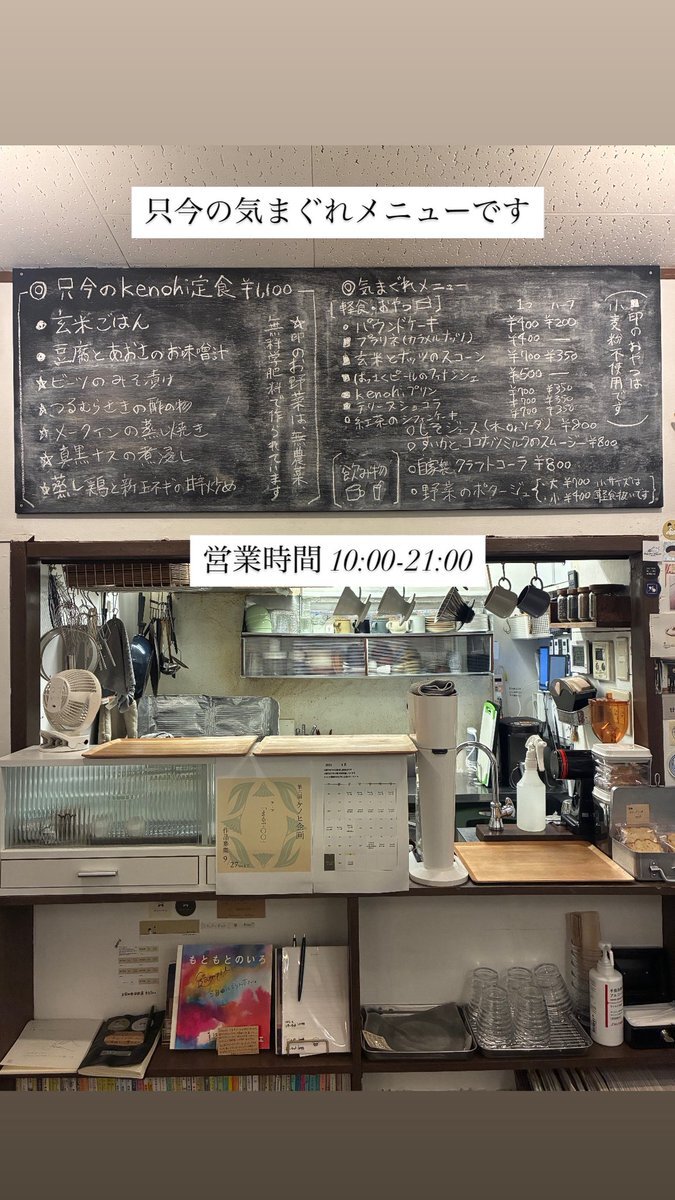 只今の気まぐれメニューです
◎ 只今のkenohi定食 ¥1,100
● 玄米ごはん
● 豆腐とあおさのお味噌汁
☆ ビーツのみそ漬け
☆ つるむらさきの酢の物
☆ メークインの蒸し焼き
☆ 真黒ナスの煮浸し
☆ 蒸し鶏と新玉ネギの甘辛炒め
☆印のお野菜は無農薬
無科学肥料で作られています
◎ 気まぐれメニュー
[軽食・おやつ
1コ ハーフ
パウンドケーキ ¥400 ¥200
プラリネ(カラメルナッツ) ¥400 —
玄米とナッツのスコーン ¥700 ¥350
はっさくピールのフィナンシェ ¥500 —
kenohiプリン ¥700 ¥350
テリーヌショコラ ¥700 ¥350
紅茶のシフォンケーキ ¥700 ¥350
印のおやつは
小麦粉不使用です
[飲み物
○しそジュース(水orソーダ) ¥800
○すいかとココナツミルクのスムージー ¥800
○自家製クラフトコーラ ¥800
○野菜のポタージュ
・大 ¥700 小サイズは
・小 ¥400 軽食扱いです
営業時間 10:00-21:00
ケノヒ企画
もともとのいろ